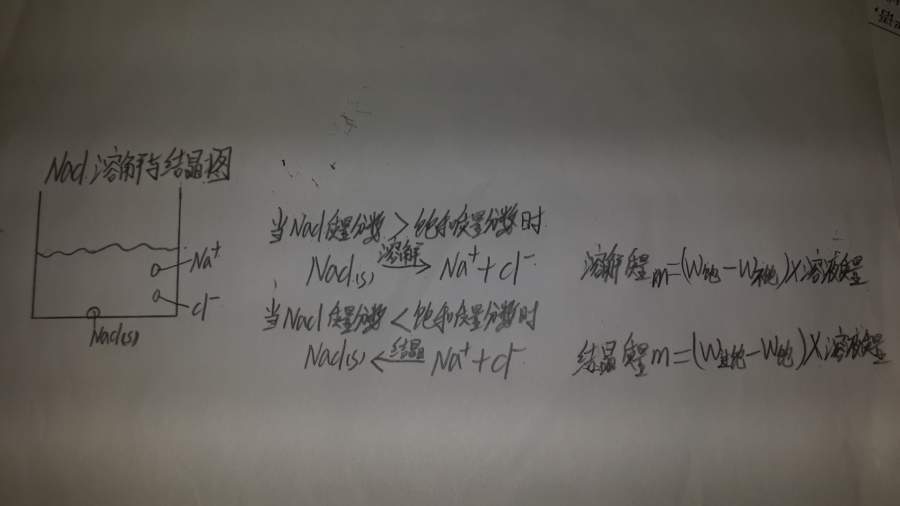 NaCl溶解与结晶图
Na⁺
Cl⁻
NaCl(s)
当NaCl质量分数>饱和质量分数时
NaCl(s) 溶解→ Na⁺+Cl⁻
当NaCl质量分数<饱和质量分数时
NaCl(s) ←结晶 Na⁺+Cl⁻
溶解质量m=(W饱-W不饱)×溶液质量
结晶质量m=(W过饱-W饱)×溶液质量